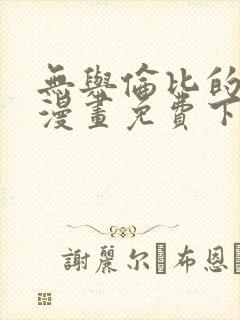 無與倫比的
漫畫免費下
謝麗尔·布恩